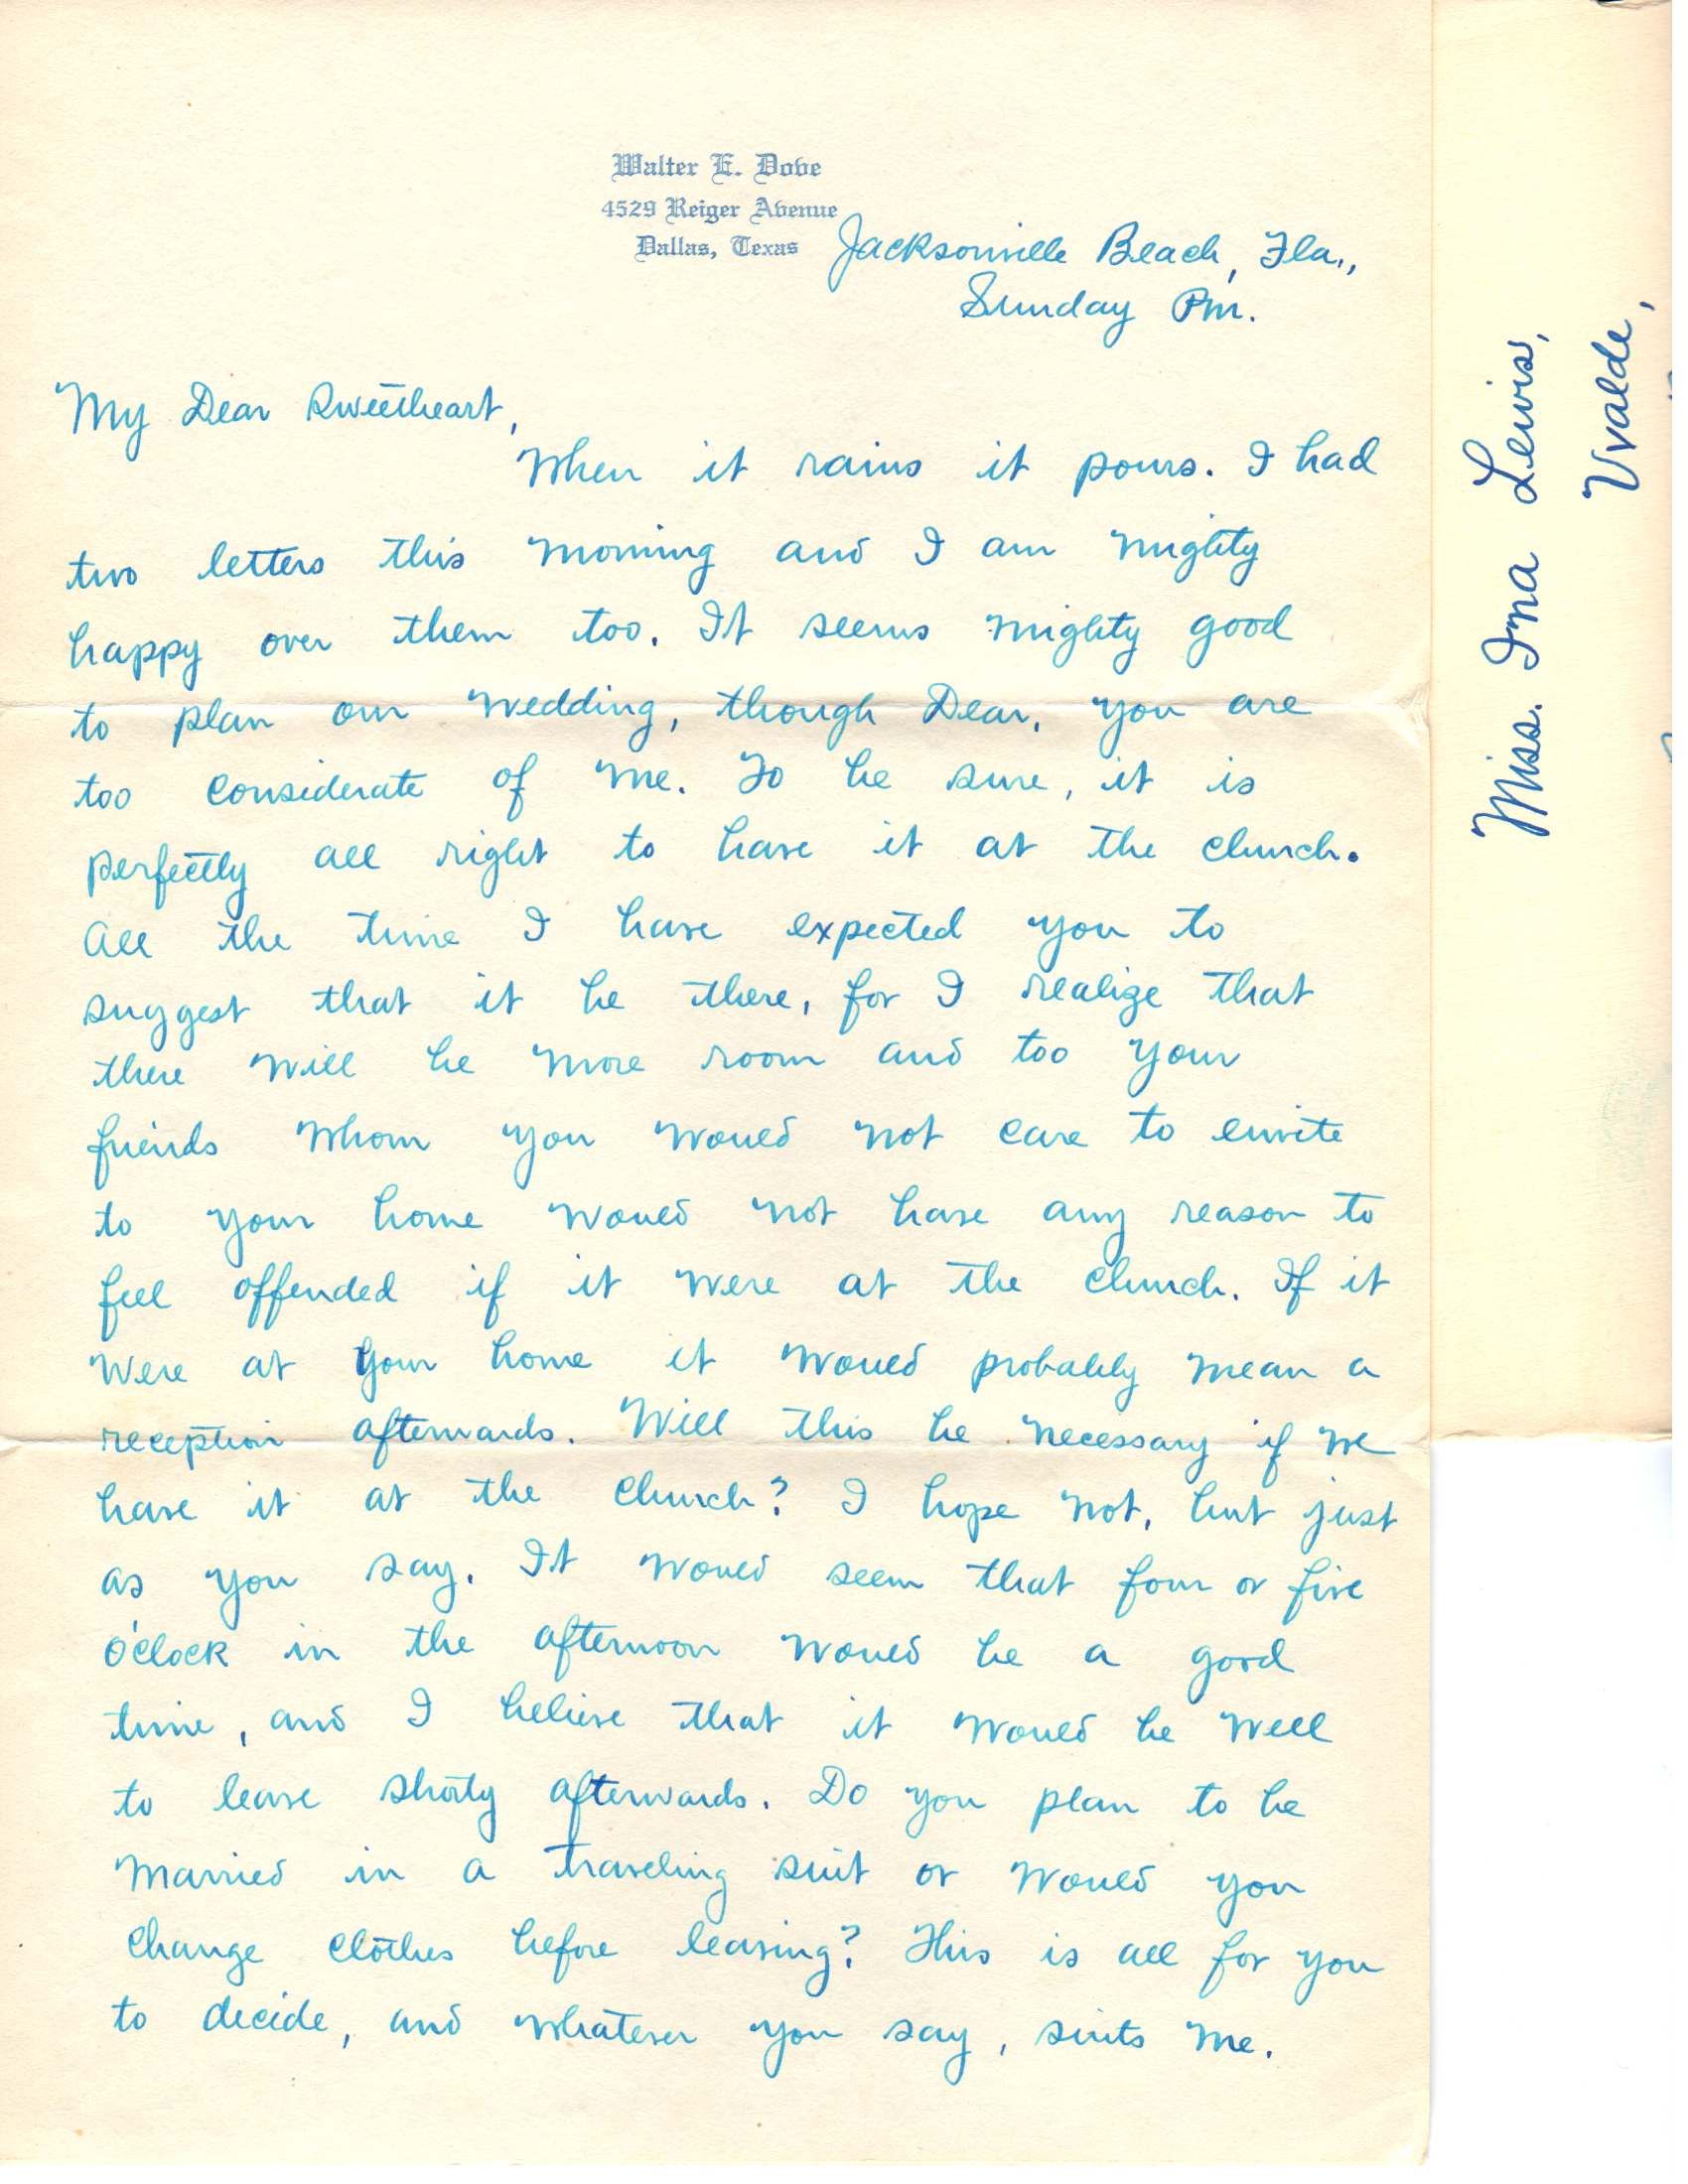 Walter E. Dove
4529 Reiger Avenue
Dallas, Texas
Jacksonville Beach, Fla.,
Sunday Pm.
My Dear Sweetheart,
When it rains it pours. I had
two letters this morning and I am mighty
happy over them too. It seems mighty good
to plan our wedding, though Dear, you are
too considerate of me. To be sure, it is
perfectly all right to have it at the church.
All the time I have expected you to
suggest that it be there, for I realize that
there will be more room and too your
friends whom you would not care to envite
to your home would not have any reason to
feel offended if it were at the church. If it
were at your home it would probably mean a
reception afterwards. Will this be necessary if we
have it at the church? I hope not, but just
as you say. It would seem that four or five
o'clock in the afternoon would be a good
time, and I believe that it would be well
to leave shortly afterwards. Do you plan to be
married in a traveling suit or would you
change clothes before leaving? This is all for you
to decide, and whatever you say, suits me.
Miss. Ina Lewis,
Uvalde,